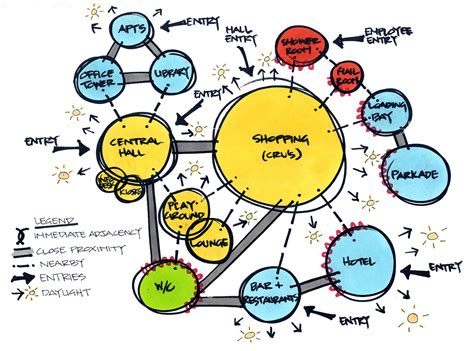 APTS
ENTRY
HALL
ENTRY
EMPLOYEE
ENTRY
SHOWER
ROOM
OFFICE
TOWER
LIBRARY
MAIL
ROOM
LOADING
BAY
ENTRY
ENTRY
CENTRAL
HALL
SHOPPING
(CRU'S)
PARKADE
INFO
DESK
KIOSKS
PLAY-
GROUND
LOUNGE
LEGEND
IMMEDIATE ADJACENCY
CLOSE PROXIMITY
NEARBY
ENTRIES
DAYLIGHT
W/C
BAR +
RESTAURANTS
HOTEL
ENTRY
ENTRY